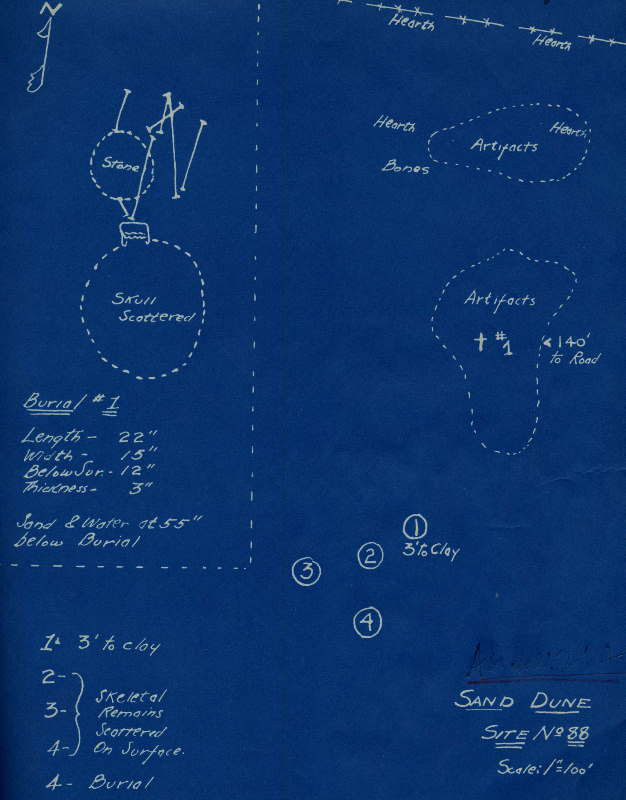 N
Hearth
Hearth
Hearth
Hearth
Artifacts
Bones
Stone
Skull
Scattered
Artifacts
#1
140'
to Road
Burial #1
Length - 22"
Width - 15"
Below Sur. - 12"
Thickness - 3"
Sand & Water at 55"
below Burial
1
3' to Clay
2
3
4
1- 3' to clay
2-
3-
4-
Skeletal
Remains
Scattered
On Surface.
4- Burial
SAND DUNE
SITE No 88
Scale: 1"=100'